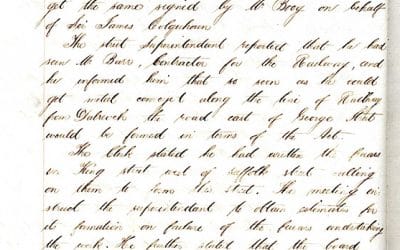 got the same signed by Mr Brog on behalf
of Sir James Colquhoun
The street Superintendent reported that he had
seen Mr Barr, Contractor for the Railway, and
he informed him that so soon as he could
get metal conveyed along the line of Railway
from Dalreoch the road east of George Street
would be formed in terms of the Act.
The Clerk stated he had written the feuars
in King street west of Suffolk street calling
on them to form this street. The meeting in-
struct the superintendent to obtain estimates for
its formation on failure of the feuars undertaking
the work. He further stated that the board